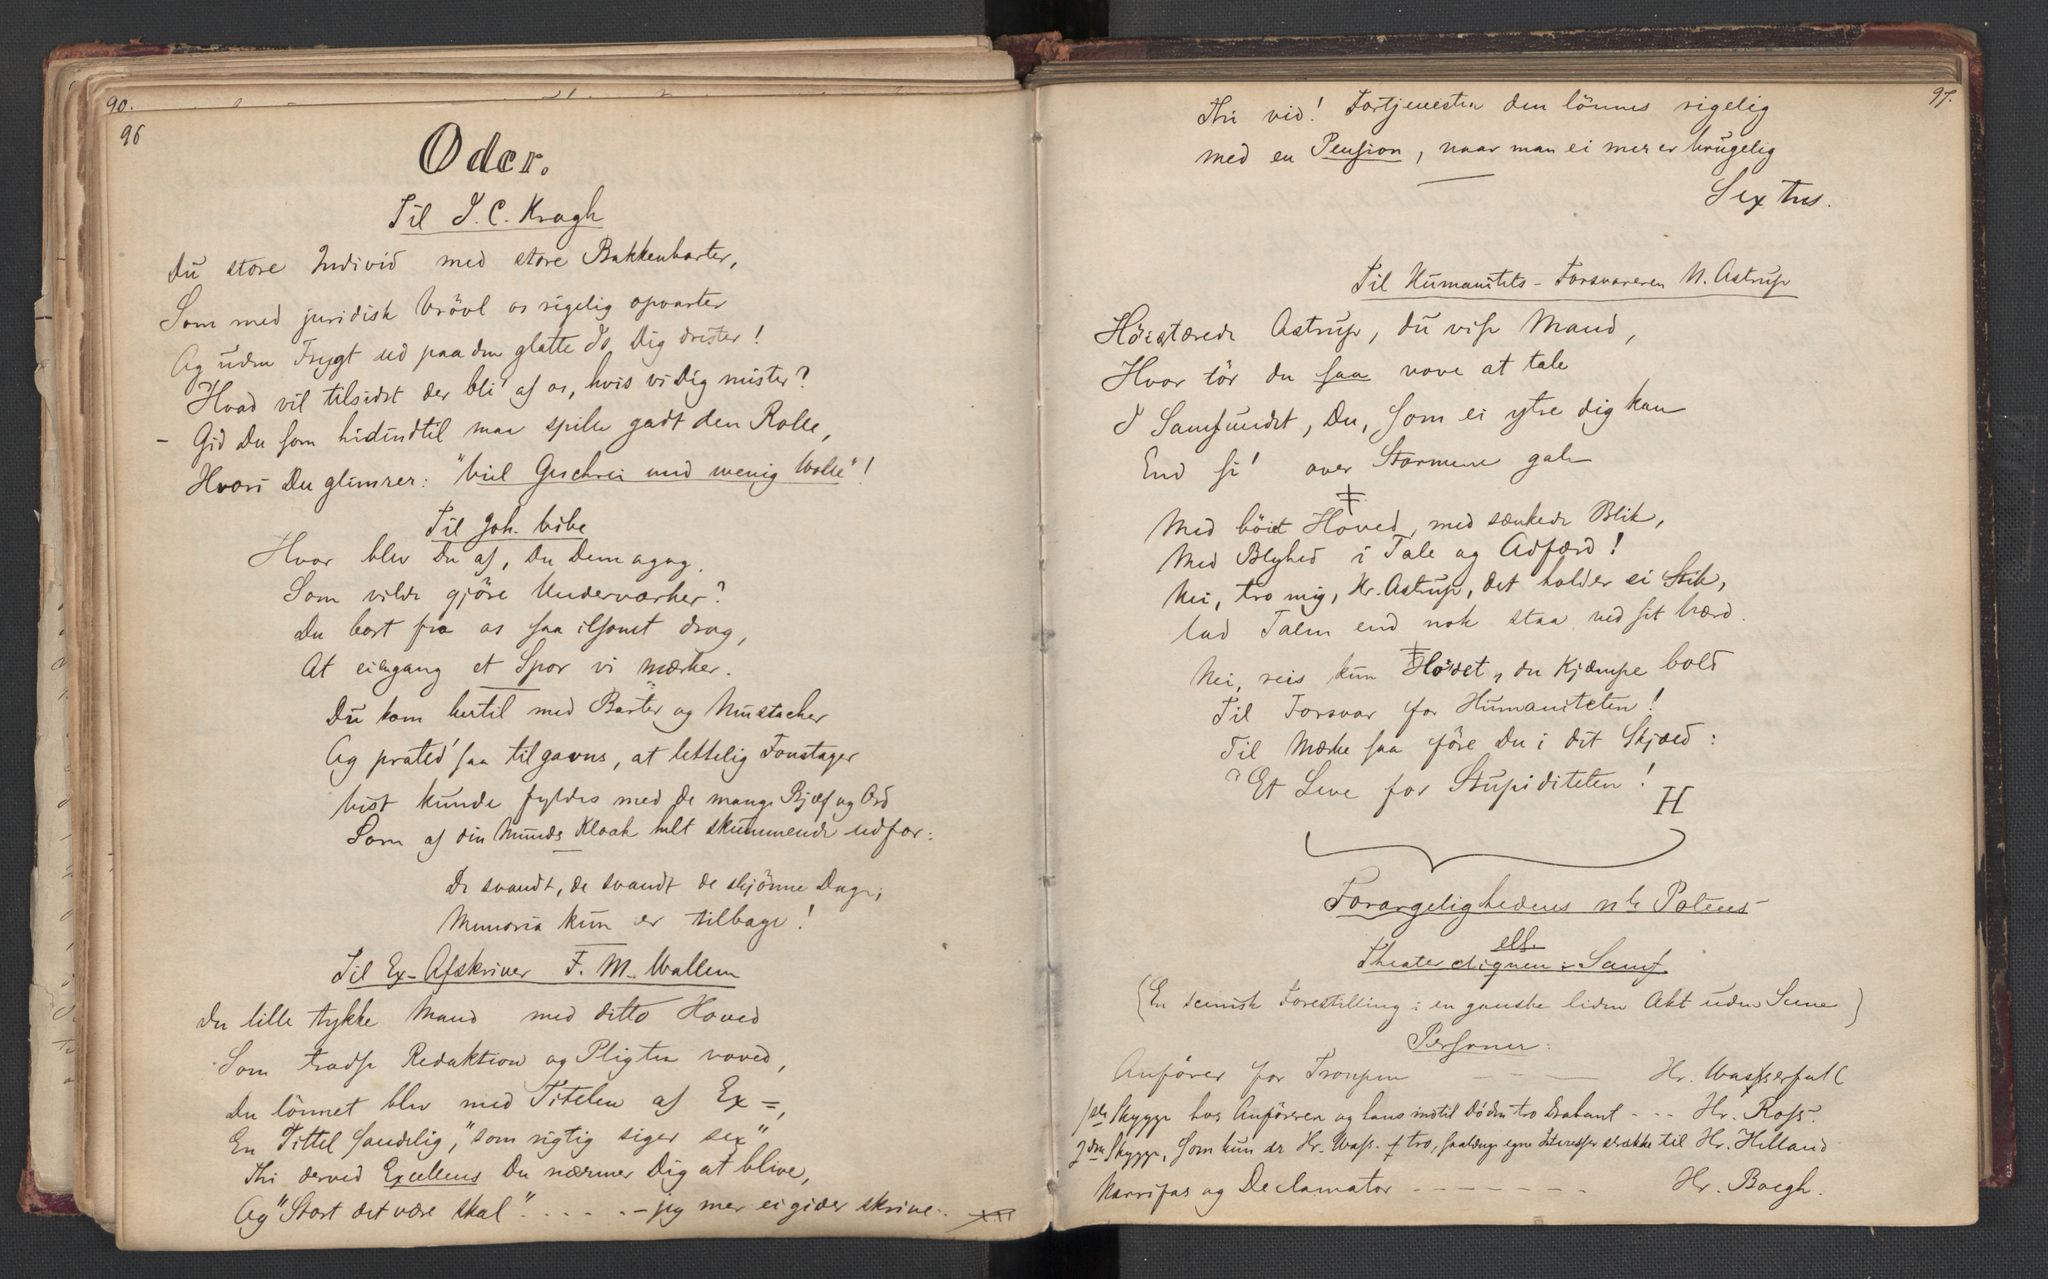 90.
96
Oder.
Til J. C. Kragh
Du store Individ med store Bakkenbarter,
Som med juridisk Vrövl os rigelig opvarter
Og uden Frygt ud paa den glatte Is Dig drister!
Hvad vil tilsidst der bli' af os, hvis vi Dig mister?
- Gid Du som hidindtil maa spille godt den Rolle,
Hvori Du glimrer: "Viel Geschrei und wenig Wolle"!
Til Joh. Vibe
Hvor blev Du af, Du Demagog,
Som vilde gjöre Underværker?
Du bort fra os saa ilsomt drog,
At ei engang et Spor vi mærker.
Du kom hertil med Barter og Mustacher
Og prated' saa tilgavns, at lettelig Foustager
Vist kunde fyldes med de mange Bjæf og Ord
Som af din Munds Kloak helt skummende udfor:
De svandt, de svandt de skjönne Dage,
Memoria kun er tilbage!
Til Ex-Afskriver F. M. Wallem
Du lille tykke Mand med ditto Hoved
Som trods Redaktion og Pligter voved,
Du lönnet blev med Titelen af Ex=,
En Tittel sandelig, "som rigtig siger sex",
Thi derved Excellens Du nærmer Dig at blive,
Og "Stort det være skal" . . . . . - jeg mer ei gider skrive.
97.
Thi vid! Fortjenesten den lönnes rigelig
med en Pension, naar man ei mer er brugelig
Sextus.
Til Humanitets-Forsvareren N. Astrup
Höistærede Astrup, du vise Mand,
Hvor tör du saa vove at tale
I Samfundet, Du, som ei ytre dig kan
End si' over Stormene gale
Med böiet Hoved, med sænkede Blik,
Med Blyhed i Tale og Adfærd!
Nei, tro mig, Hr. Astrup, det holder ei Stik,
Lad Talen end nok staa ved sit Værd.
Nei, reis kun Ho'det, du Kjæmpe bold
Til Forsvar for Humaniteten!
Til Mærke saa före Du i dit Skjold:
"Et Leve for Stupiditeten!
H
Forargelighedens nte Potens
ell.
Theater i Samf.
(En scenisk Forestilling i en ganske liden Akt uden Scene)
Personer:
Anförer for Troupen - - - Hr. Wasserfall
1ste Skygge hos Anföreren og hans indtil Döden tro Drabant - - - Hr. Ross.
2den Skygge, som kun er Hr. Wass. tro, saalænge egne Interesser strække til Hr. Helland
Narrifas og Declamator - - - - - - Hr. Boegh.